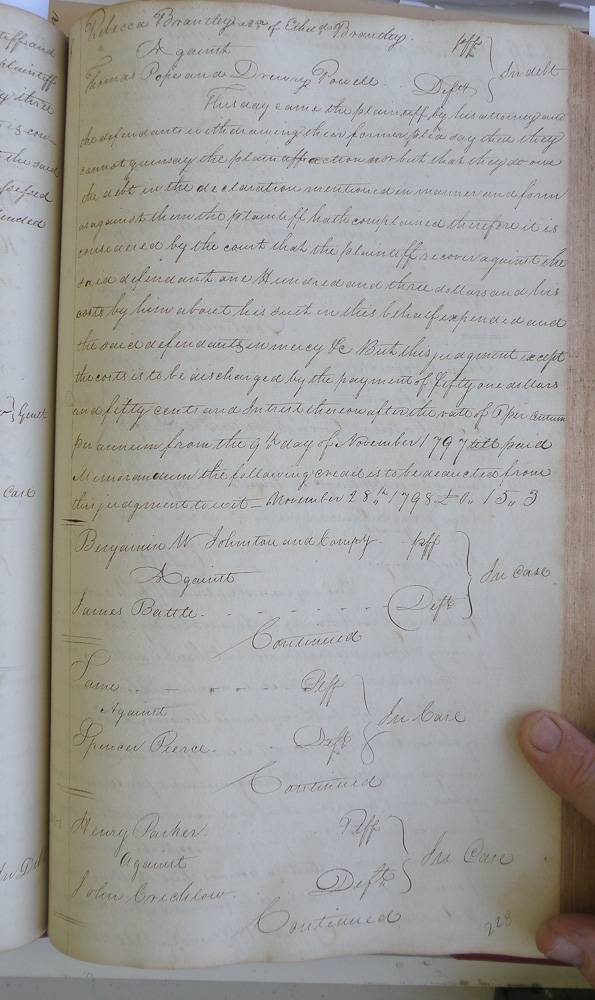 Rebecca Brantley of Brantley Plff
Against In debt
Thomas Pope and Drewry Powell Defts
This day came the plaintiff by his attorney and
the defendants withdrawing their former plea say that they
cannot gainsay the plaintiffs action nor but that they do owe
the debt in the declaration mentioned in manner and form
as against them the plaintiff hath complained therefore it is
considered by the court that the plaintiff recover against the
said defendants one Hundred and three dollars and his
costs by him about his suit in this behalf expended and
the said defendants in mercy &c But this judgment except
the costs is to be discharged by the payment of fifty one dollars
and fifty cents and Intrest thereon after the rate of per centum
per annum from the 9th day of November 1797 till paid
Memorandum the following credit is to be deducted from
this judgment to wit - November 28th 1798 £0,, 15,, 3
Benjamin W Johnston and Compy. Plff
Against In Case
James Battle Deft
Continued
Same Plff
Against In Case
Spencer Pierce Deft
Continued
Henry Parker Plff
Against In Case
John Crichlow Deft
Continued
228